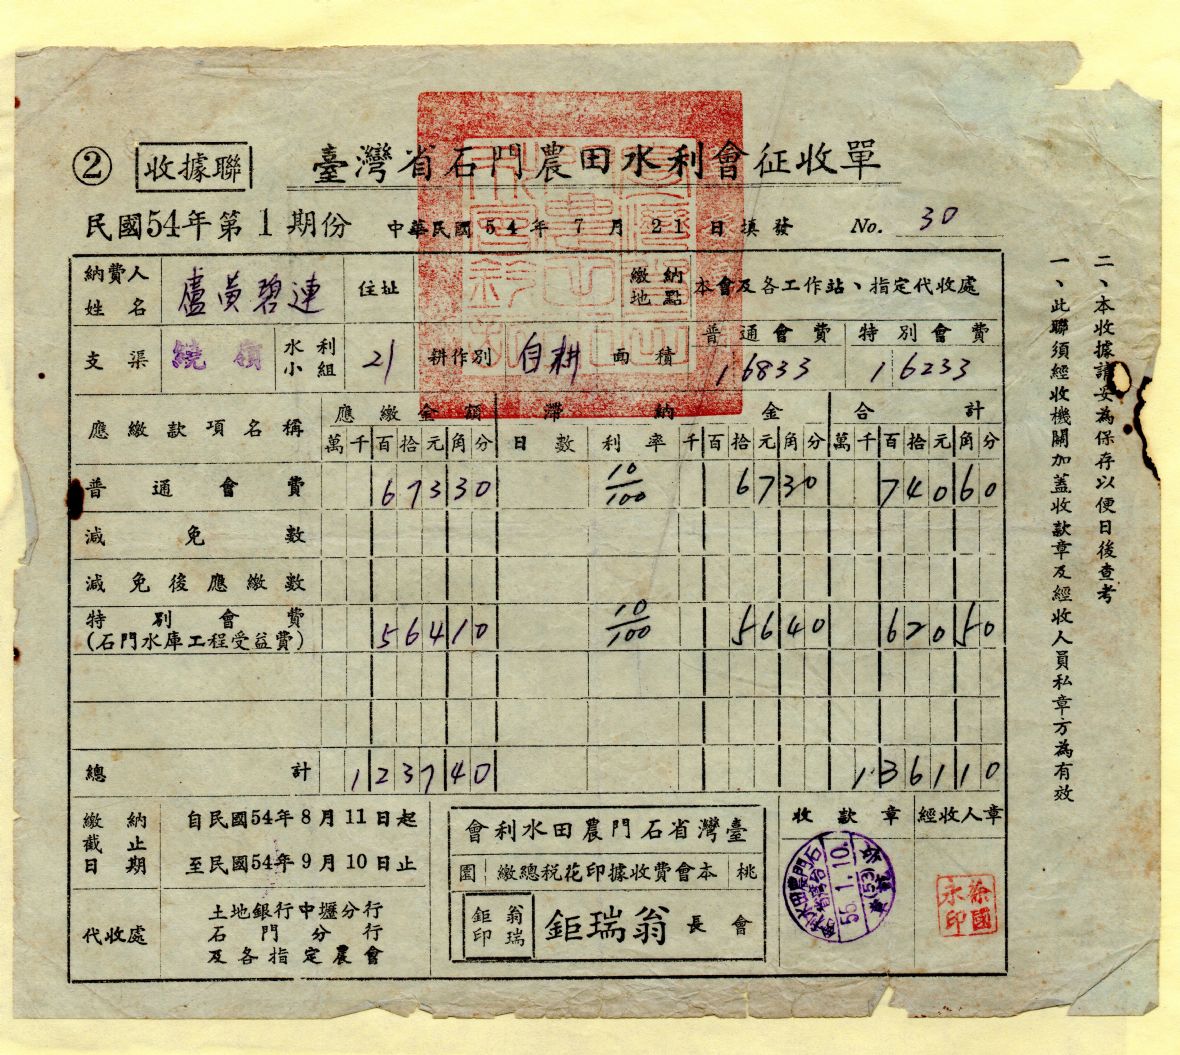 ② 收據聯 臺灣省石門農田水利會征收單
民國54年第1期份 中華民國54年7月21日填發 No. 30
納費人姓名 盧黃碧連 住址 繳納地點 本會及各工作站、指定代收處
支渠 繞嶺 水利小組 21 耕作別 自耕 面積 普通會費 1 6833 特別會費 1 6233
應繳款項名稱 應繳金額 滯納金 合計
萬千百拾元角分 日數 利率 千百拾元角分 萬千百拾元角分
普通會費 67330 10/100 6730 74060
減免數
減免後應繳數
特別會費 56410 10/100 5640 62050
(石門水庫工程受益費)
總計 123740 136110
繳納截止日期 自民國54年8月11日起
至民國54年9月10日止
代收處 土地銀行中壢分行
石門分行
及各指定農會
臺灣省石門農田水利會
桃園 本會費收據印花稅總繳
會長 翁瑞鉅
翁瑞鉅印
收款章 經收人章
55.1.10.
徐國永印
一、此聯須經收機關加蓋收款章及經收人員私章方為有效
二、本收據請妥為保存以便日後查考